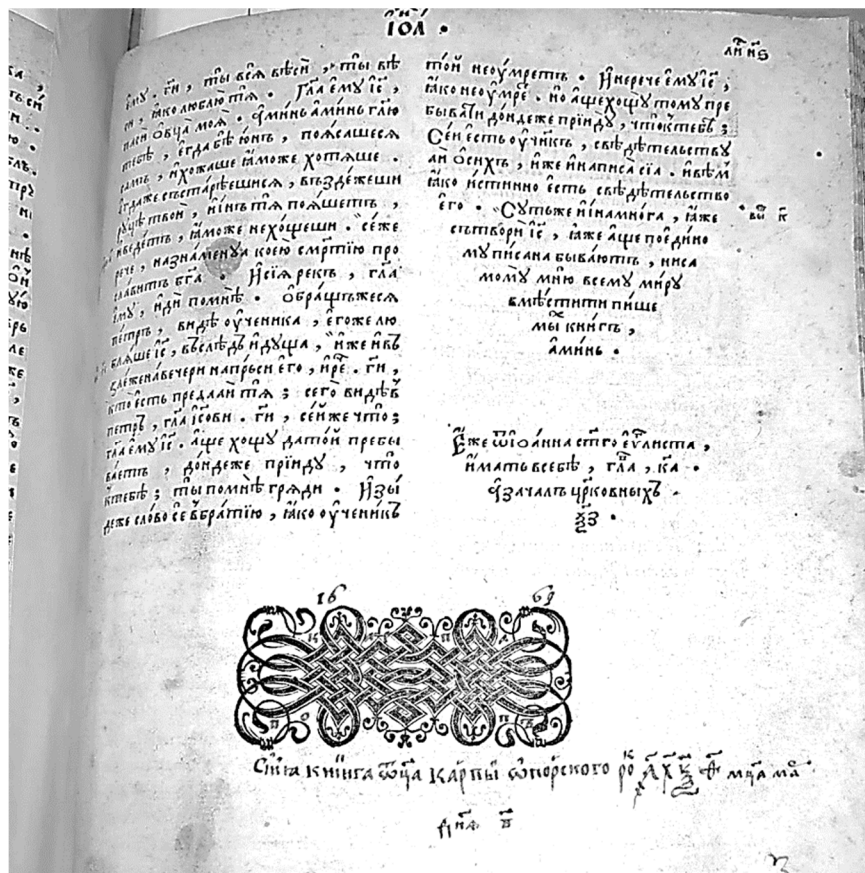 ІОА .
емꙋ . ги , ты всѧ вѣси , ты вѣ
си , ꙗко люблю тѧ . Гла емꙋ іс ,
паси овца моѧ . аминь аминь глю
тебѣ , егда бѣ юнъ , поꙗсашесѧ
самъ , и хожаше ꙗможе хотѧше .
егдаже състарѣешисѧ , въздежеши
рꙋцѣ твои , и инъ тѧ поꙗшетъ ,
и ведетъ , ꙗможе нехощеши . се́же
рече , назнаменꙋа коею смртїю про
славитъ бга . И сїѧ рекъ , гла
емꙋ , иди помнѣ . обращъжесѧ
петръ , видѣ оученика , егоже лю
блѧше іс , въслѣдъ идꙋща , иже ивъ
злеже навечери напрьси его , и рѐ . ги ,
кто есть предааи тѧ ; сего видѣв
петръ , гла ісови . ги , сей же что ;
гла емꙋ іс . аще хощꙋ да той пребы
ваетъ , дондеже прїидꙋ , что
ктебѣ ; ты помнѣ грѧди . Изы
деже слово се вбратїю , ꙗко оученикъ
той неоумретъ . И нерече емꙋ іс ,
ꙗко неоумре . но аще хощꙋ томꙋ пре
бывати дондеже прїидꙋ , что ктебѣ ;
Сеи есть оученикъ , свѣдѣтельствꙋ
аи осихъ , иже и написа сїа . и вѣм
ꙗко истинно есть свѣдѣтельство
его . Сꙋть же и ина многа , ꙗже
сътвори іс , ꙗже аще поедино
мꙋ писана бывают , ниса
момꙋ мню всемꙋ мирꙋ
вмѣстити пише
мы книгъ ,
аминь .
Еже ѿ іоанна стго еѵлиста ,
имать всебѣ , глл , ка .
а зачалъ црковныхъ .
ѯз .
16 69
Сїѧ книга ѿца Карпы